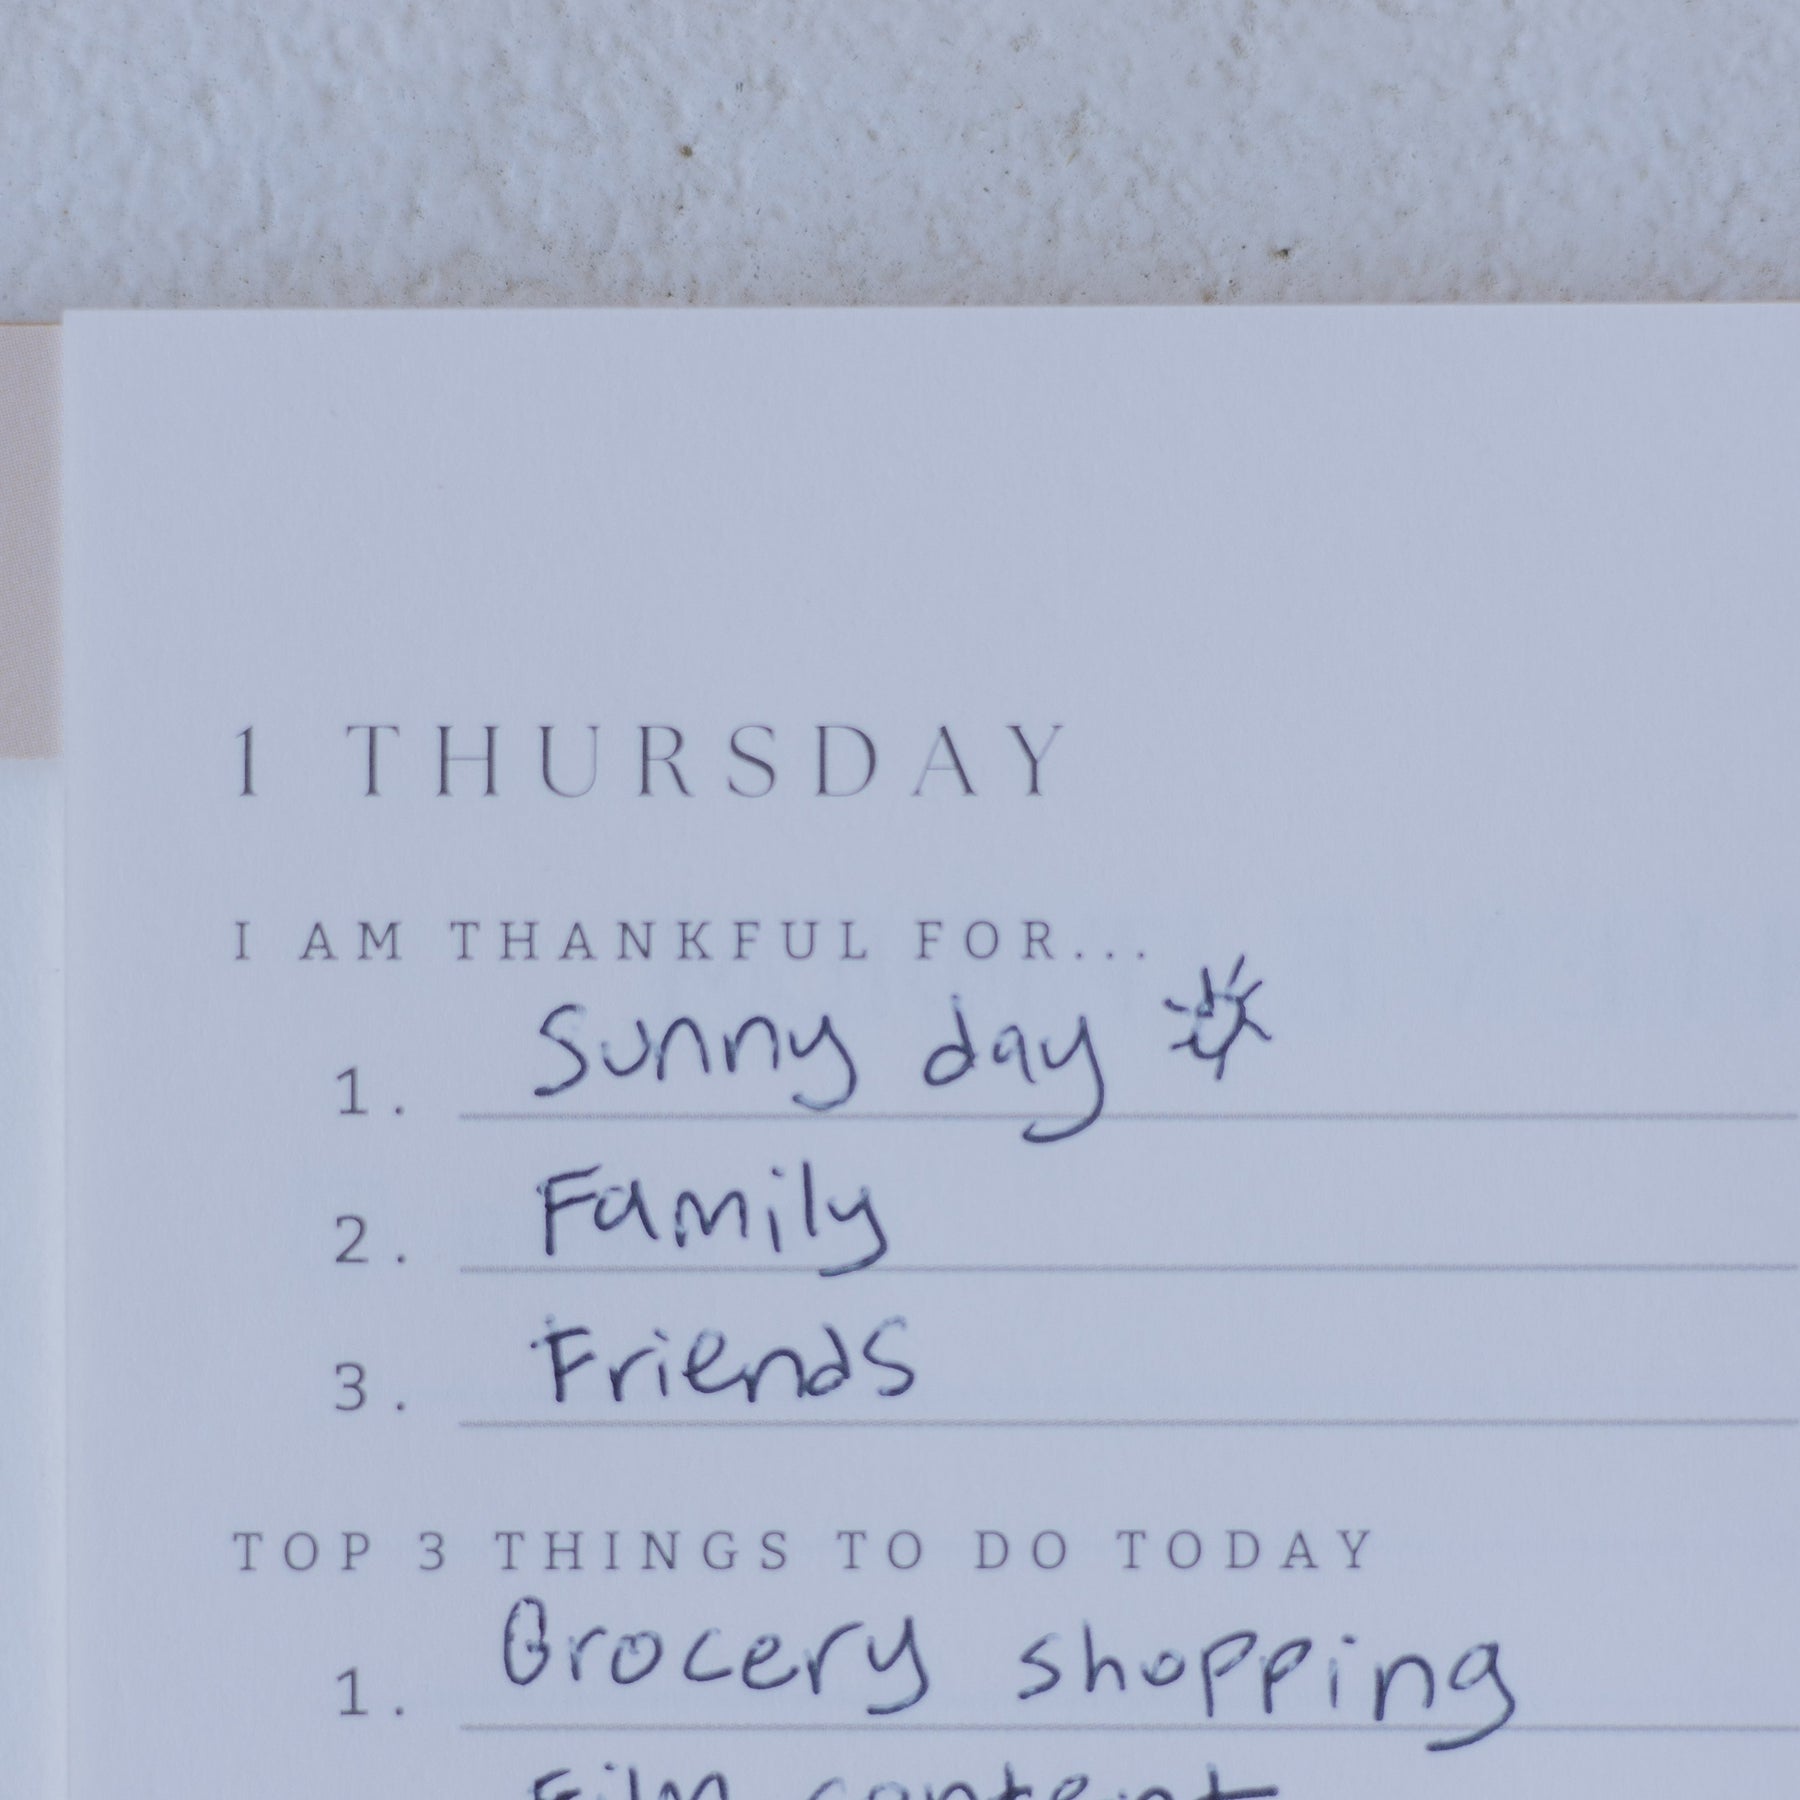 1 THURSDAY
I AM THANKFUL FOR...
1. Sunny day
2. Family
3. Friends
TOP 3 THINGS TO DO TODAY
1. Grocery shopping
Film content